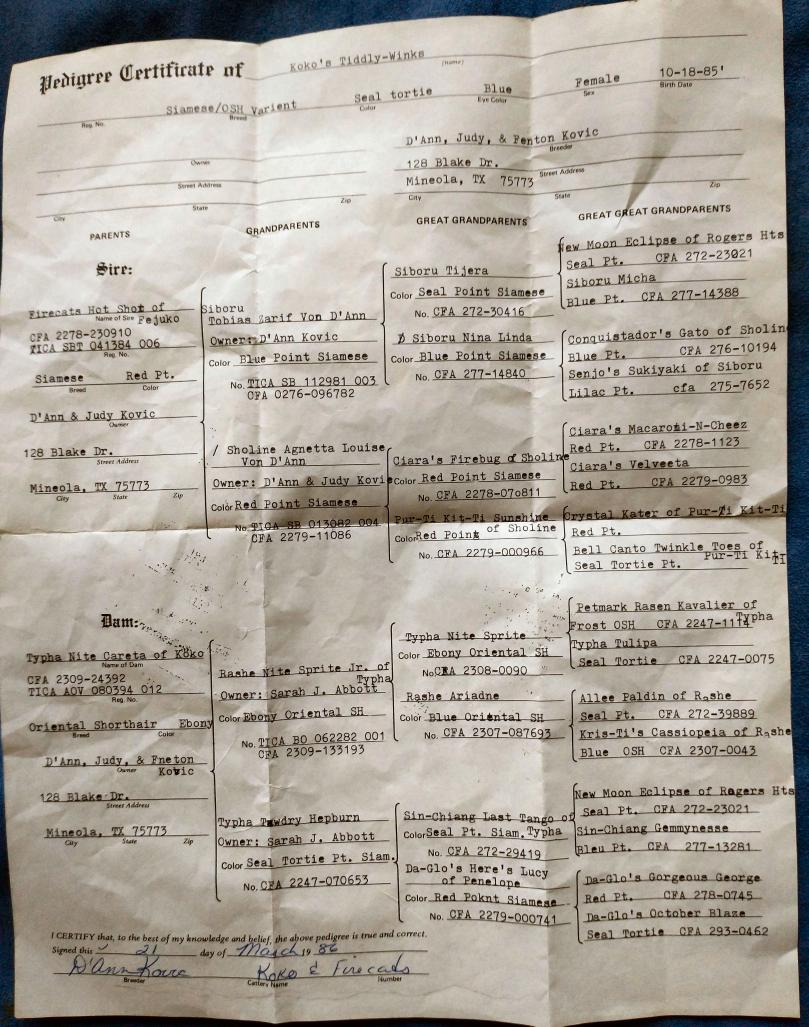 Pedigree Certificate of Koko's Tiddly-Winks
(name)
Siamese/OSH Varient Seal tortie Blue Female 10-18-85'
Reg. No. Breed Color Eye Color Sex Birth Date
D'Ann, Judy, & Fenton Kovic
Owner Breeder
128 Blake Dr.
Street Address Street Address
Mineola, TX 75773
City State Zip City State Zip
PARENTS GRANDPARENTS GREAT GRANDPARENTS GREAT GREAT GRANDPARENTS
Sire:
Firecats Hot Shot of
Name of Sire Fejuko
CFA 2278-230910
TICA SBT 041384 006
Reg. No.
Siamese Red Pt.
Breed Color
D'Ann & Judy Kovic
Owner
128 Blake Dr.
Street Address
Mineola, TX 75773
City State Zip
Siboru
Tobias Zarif Von D'Ann
Owner: D'Ann Kovic
Color Blue Point Siamese
No. TICA SB 112981 003
CFA 0276-096782
/ Sholine Agnetta Louise
Von D'Ann
Owner: D'Ann & Judy Kovi
Color Red Point Siamese
No. TICA SB 013082 004
CFA 2279-11086
Siboru Tijera
Color Seal Point Siamese
No. CFA 272-30416
Siboru Nina Linda
Color Blue Point Siamese
No. CFA 277-14840
Ciara's Firebug of Sholine
Color Red Point Siamese
No. CFA 2278-070811
Pur-Ti Kit-Ti Sunshine
of Sholine
Color Red Point
No. CFA 2279-000966
New Moon Eclipse of Rogers Hts
Seal Pt. CFA 272-23021
Siboru Micha
Blue Pt. CFA 277-14388
Conquistador's Gato of Sholin
Blue Pt. CFA 276-10194
Senjo's Sukiyaki of Siboru
Lilac Pt. cfa 275-7652
Ciara's Macaroni-N-Cheez
Red Pt. CFA 2278-1123
Ciara's Velveeta
Red Pt. CFA 2279-0983
Crystal Kater of Pur-Ti Kit-Ti
Red Pt.
Bell Canto Twinkle Toes of
Pur-Ti Kit-Ti
Seal Tortie Pt.
Dam:
Typha Nite Careta of Koko
Name of Dam
CFA 2309-24392
TICA AOV 080394 012
Reg. No.
Oriental Shorthair Ebony
Breed Color
D'Ann, Judy, & Fneton
Owner Kovic
128 Blake Dr.
Street Address
Mineola, TX 75773
City State Zip
Rashe Nite Sprite Jr. of
Typha
Owner: Sarah J. Abbott
Color Ebony Oriental SH
No. TICA BO 062282 001
CFA 2309-133193
Typha Tawdry Hepburn
Owner: Sarah J. Abbott
Color Seal Tortie Pt. Siam.
No. CFA 2247-070653
Typha Nite Sprite
Color Ebony Oriental SH
No. CFA 2308-0090
Rashe Ariadne
Color Blue Oriental SH
No. CFA 2307-087693
Sin-Chiang Last Tango of
Typha
Color Seal Pt. Siam.
No. CFA 272-29419
Da-Glo's Here's Lucy
of Penelope
Color Red Poknt Siamese
No. CFA 2279-000741
Petmark Rasen Kavalier of
Typha
Frost OSH CFA 2247-1114
Typha Tulipa
Seal Tortie CFA 2247-0075
Allee Paldin of Rashe
Seal Pt. CFA 272-39889
Kris-Ti's Cassiopeia of Rashe
Blue OSH CFA 2307-0043
New Moon Eclipse of Rogers Hts
Seal Pt. CFA 272-23021
Sin-Chiang Gemmynesse
Bleu Pt. CFA 277-13281
Da-Glo's Gorgeous George
Red Pt. CFA 278-0745
Da-Glo's October Blaze
Seal Tortie CFA 293-0462
I CERTIFY that, to the best of my knowledge and belief, the above pedigree is true and correct.
Signed this 21 day of March 19 86
D'Ann Kovic Koko & Firecats
Breeder Cattery Name Number